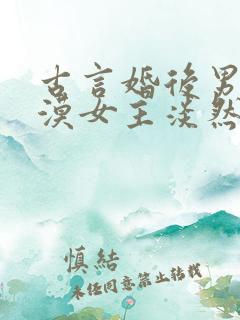 古言婚後男
漠女主淡然
慎結
未任同意禁止转载